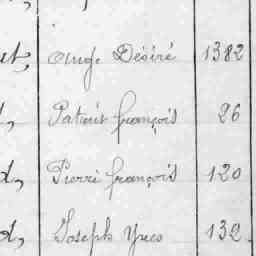 ut, Ange Désiré 1382
d, Patrice françois 26
d, Pierre françois 120
d, Joseph Yves 132